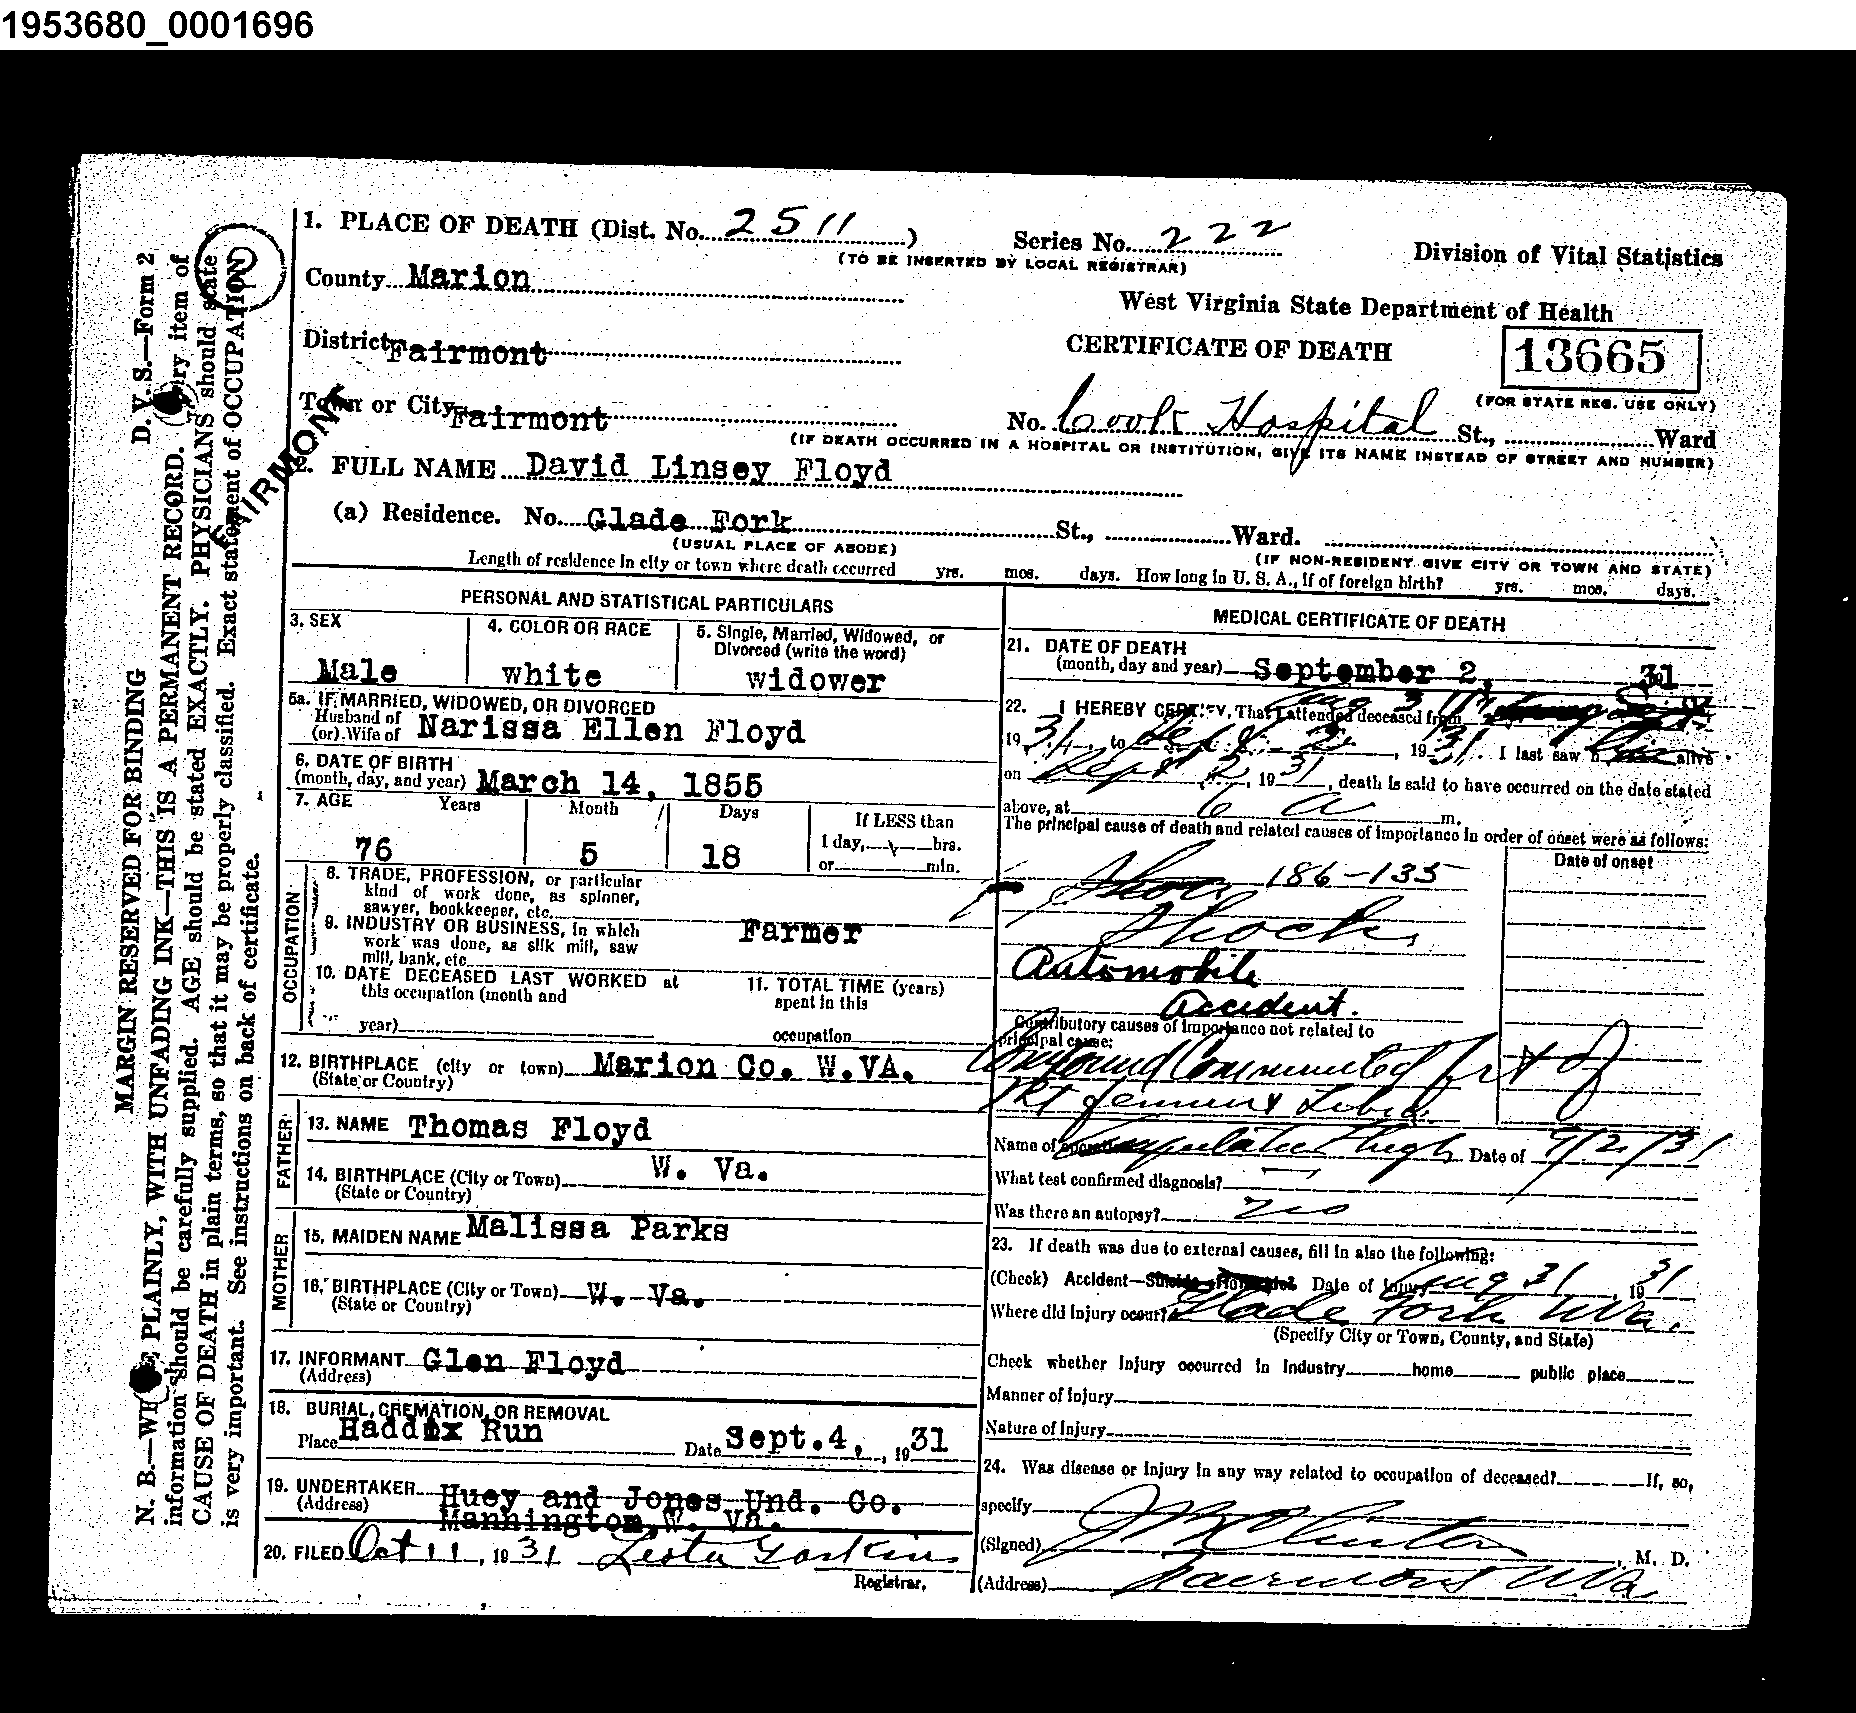 1953680_0001696
1. PLACE OF DEATH (Dist. No. 2511 ) Series No. 222
(TO BE INSERTED BY LOCAL REGISTRAR)
Division of Vital Statistics
County Marion
West Virginia State Department of Health
District Fairmont
CERTIFICATE OF DEATH
13665
(FOR STATE REG. USE ONLY)
Town or City Fairmont
No. Cook Hospital St., Ward
(IF DEATH OCCURRED IN A HOSPITAL OR INSTITUTION, GIVE ITS NAME INSTEAD OF STREET AND NUMBER)
FAIRMONT
2. FULL NAME David Linsey Floyd
(a) Residence. No. Glade Fork St., Ward.
(USUAL PLACE OF ABODE) (IF NON-RESIDENT GIVE CITY OR TOWN AND STATE)
Length of residence in city or town where death occurred yrs. mos. days. How long in U. S. A., if of foreign birth? yrs. mos. days.
PERSONAL AND STATISTICAL PARTICULARS
3. SEX
Male
4. COLOR OR RACE
white
5. Single, Married, Widowed, or
Divorced (write the word)
widower
5a. IF MARRIED, WIDOWED, OR DIVORCED
Husband of
(or) Wife of Narissa Ellen Floyd
6. DATE OF BIRTH
(month, day, and year) March 14, 1855
7. AGE Years Month Days
76 5 18
If LESS than
1 day, hrs.
or min.
OCCUPATION
8. TRADE, PROFESSION, or particular
kind of work done, as spinner,
sawyer, bookkeeper, etc.
9. INDUSTRY OR BUSINESS, in which
work was done, as silk mill, saw
mill, bank, etc
Farmer
10. DATE DECEASED LAST WORKED at
this occupation (month and
year)
11. TOTAL TIME (years)
spent in this
occupation
12. BIRTHPLACE (city or town) Marion Co. W.VA.
(State or Country)
FATHER
13. NAME Thomas Floyd
14. BIRTHPLACE (City or Town) W. Va.
(State or Country)
MOTHER
15. MAIDEN NAME Malissa Parks
16. BIRTHPLACE (City or Town) W. Va.
(State or Country)
17. INFORMANT Glen Floyd
(Address)
18. BURIAL, CREMATION, OR REMOVAL
Place Haddix Run Date Sept.4, , 1931
19. UNDERTAKER Huey and Jones Und. Co.
(Address) Mannington, W. Va.
20. FILED Oct 11, 1931
Registrar.
MEDICAL CERTIFICATE OF DEATH
21. DATE OF DEATH
(month, day and year) September 2, 31
22. I HEREBY CERTIFY, That I attended deceased from Aug 31
1931 to Sept 2, 1931. I last saw him alive
on Sept 2, 1931, death is said to have occurred on the date stated
above, at 6 a m.
The principal cause of death and related causes of importance in order of onset were as follows:
Date of onset
186-135
Shock
Automobile
Accident.
Contributory causes of importance not related to
principal cause:
Compound Comminuted frt of
Rt femur & Tibia
Name of operation Amputation thigh Date of 9/2/31
What test confirmed diagnosis?
Was there an autopsy? no
23. If death was due to external causes, fill in also the following:
(Check) Accident Suicide Homicide Date of injury Aug 31, 1931
Where did injury occur? Glade Fork W Va.
(Specify City or Town, County, and State)
Check whether injury occurred in industry home public place
Manner of injury
Nature of injury
24. Was disease or injury in any way related to occupation of deceased? If, so,
specify
(Signed) , M. D.
(Address) Fairmont W Va
D. V. S.—Form 2
MARGIN RESERVED FOR BINDING
N. B.—WRITE PLAINLY, WITH UNFADING INK—THIS IS A PERMANENT RECORD. Every item of
information should be carefully supplied. AGE should be stated EXACTLY. PHYSICIANS should state
CAUSE OF DEATH in plain terms, so that it may be properly classified. Exact statement of OCCUPATION
is very important. See instructions on back of certificate.